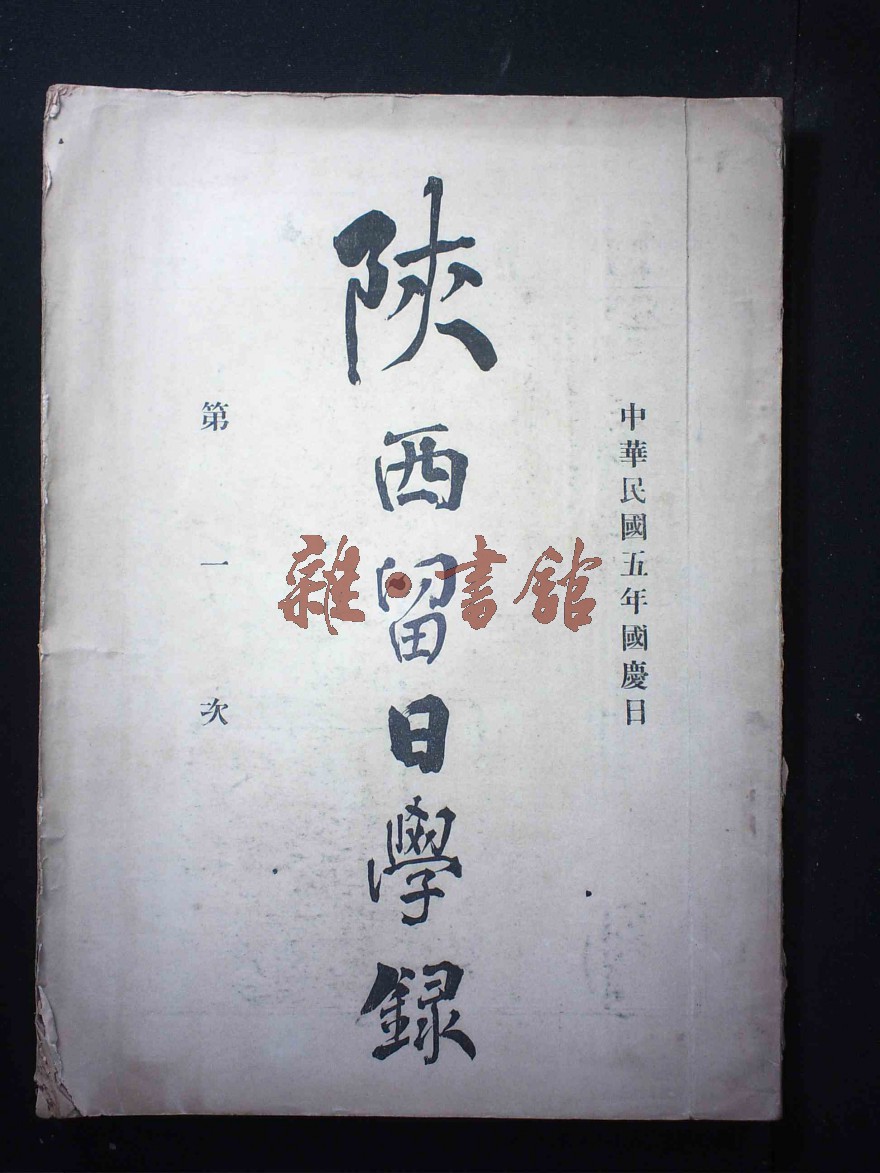 中華民國五年國慶日
陝西留日學録
第一次
雜·書館